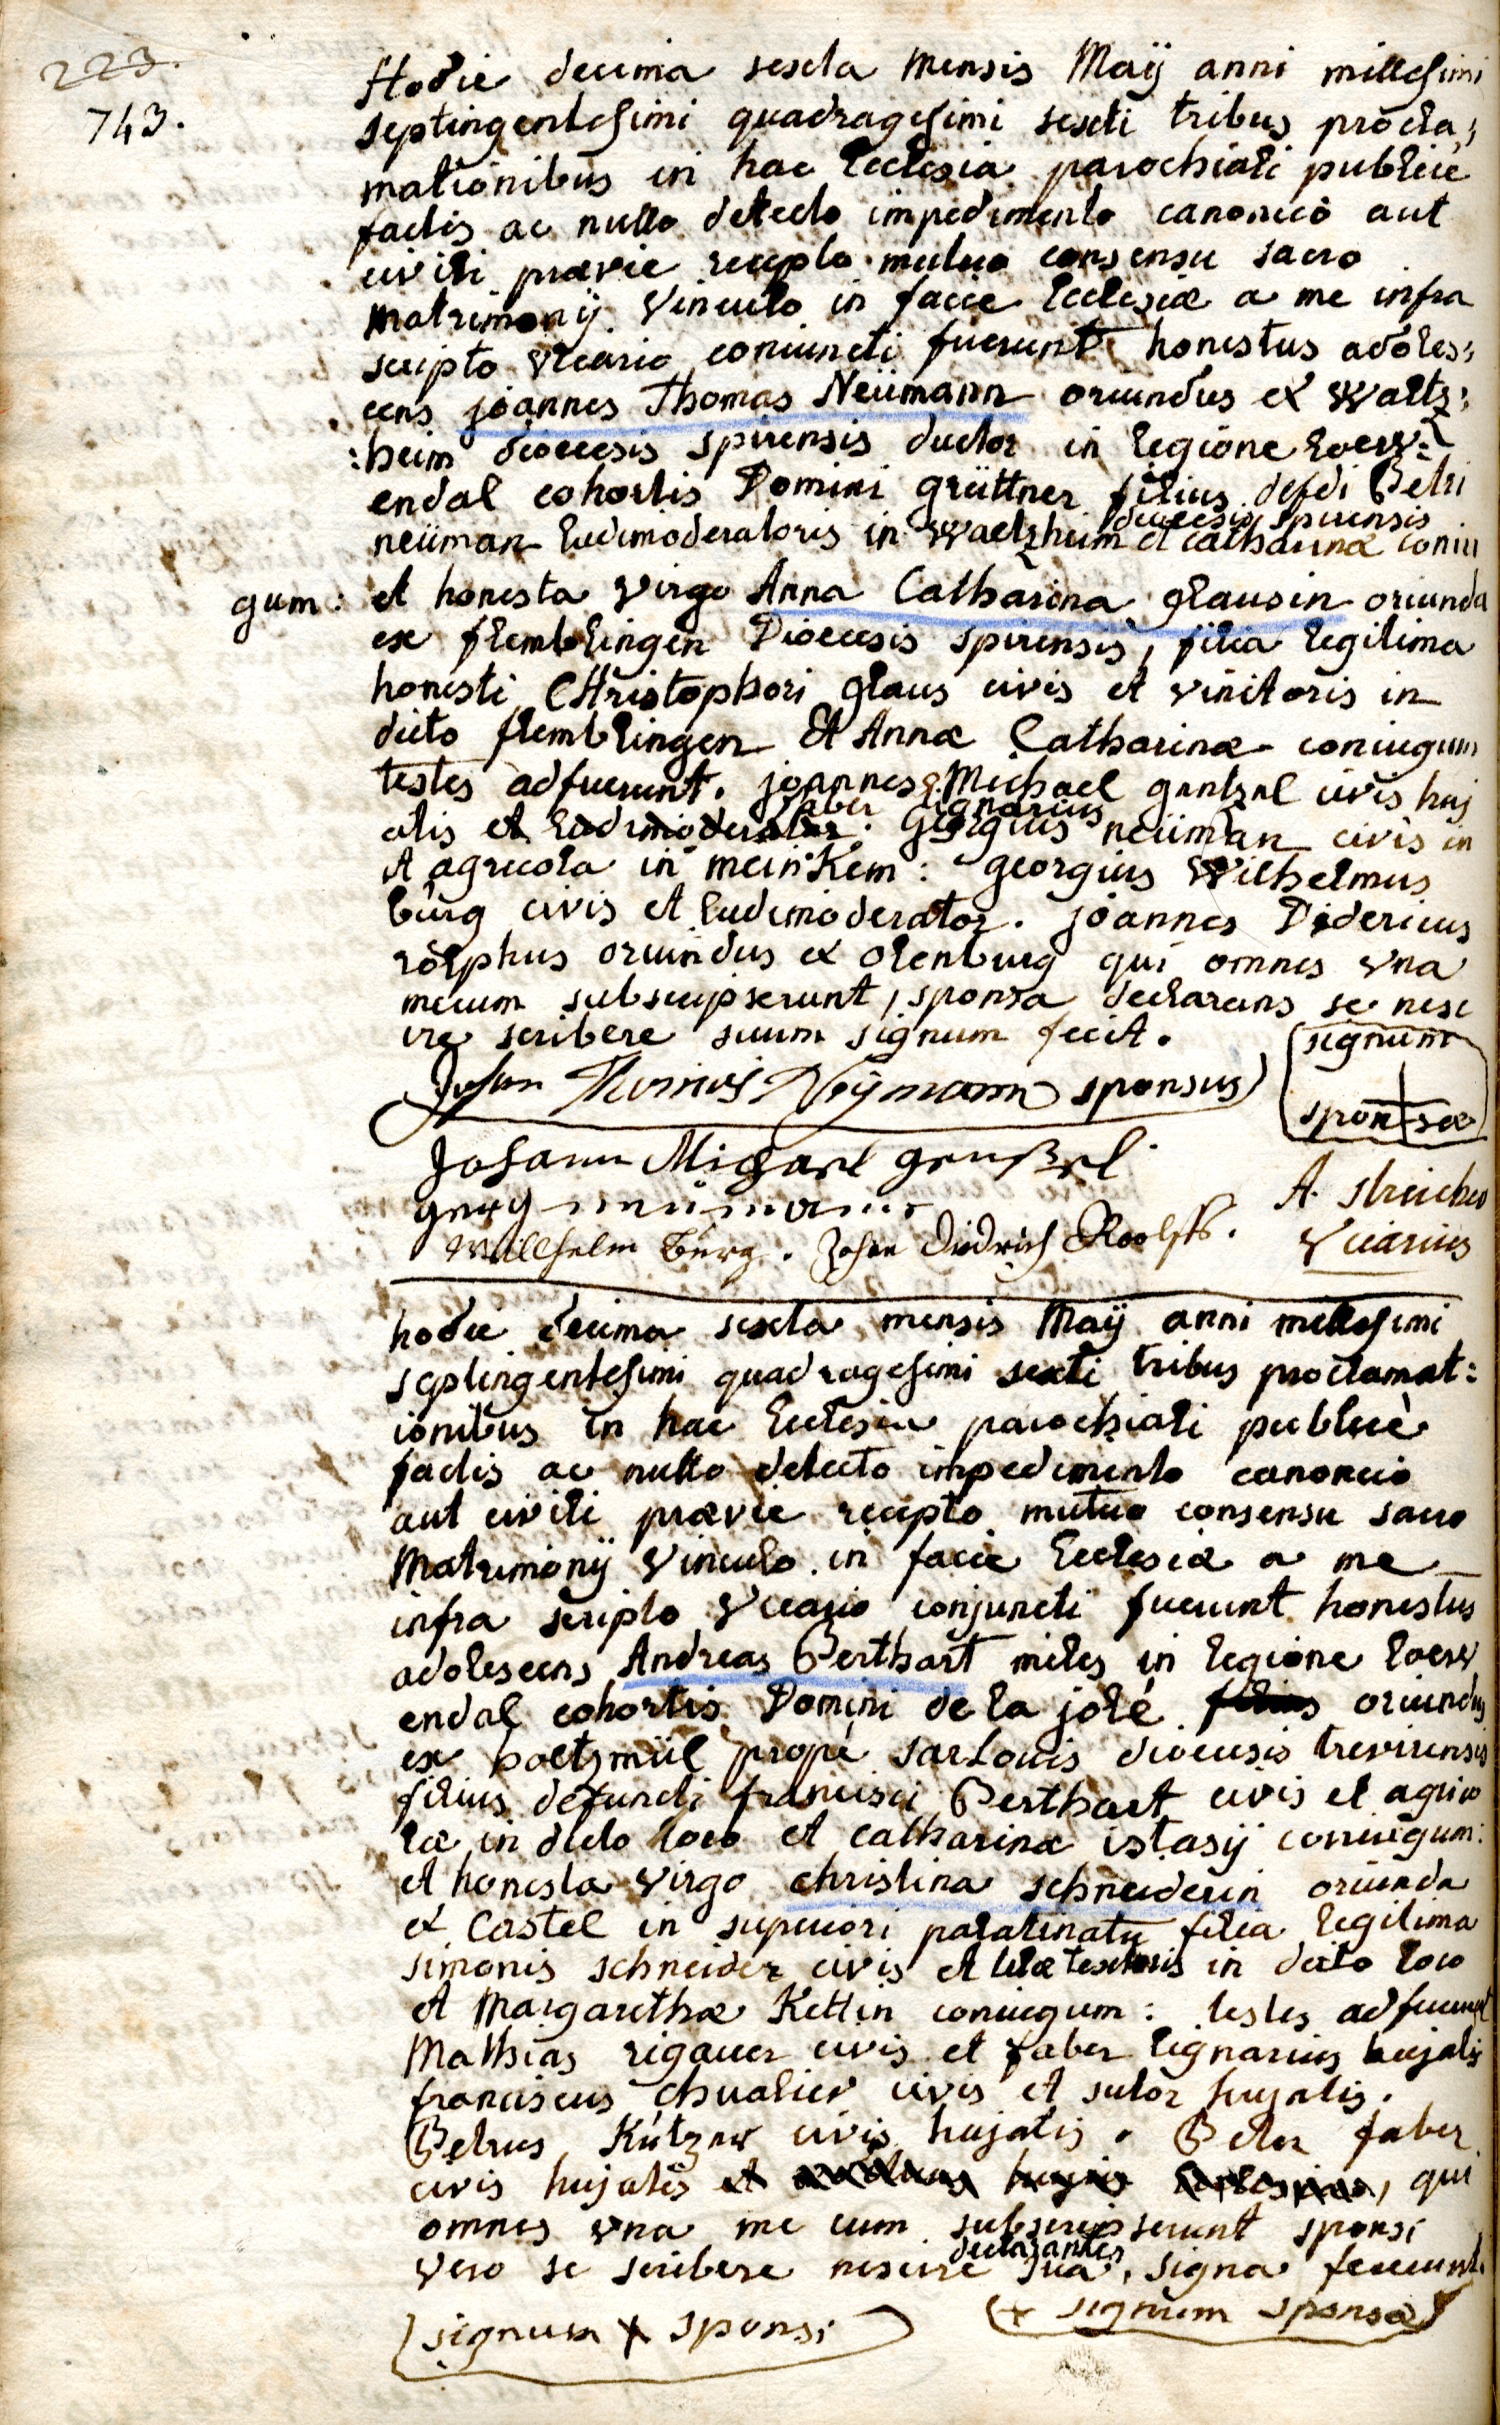 223.
743.
Hodie decima sexta mensis Maÿ anni millesimi
septingentesimi quadragesimi sexti tribus procla,,
mationibus in hac Ecclesia parochiali publice
factis ac nullo detecto impedimento canonico aut
civili prævie recepto mutuo consensu sacro
Matrimonÿ Vinculo in facie Ecclesiæ a me infra
scripto vicario coniuncti fuerunt honestus adoles,,
cens joannes Thomas Neümann oriundus ex Waltz:
:heim diœcesis spirensis ductor in legione loew:
endal cohortis Domini grüttner filius defdi Petri
diœcesis spirensis
neüman Ludimoderatoris in Waelzheim et catharinæ coniu
gum: et honesta virgo Anna Catharina glausin oriunda
ex flemblingen Diœcesis spirensis, filia legitima
honesti CHristophori glaus civis et vinitoris in
dicto flemblingen Et Annæ Catharinæ coniugum
testes adfuerunt. joannes Michael gentzel civis huj
faber lignarius
atis et Ludimoderator. Georgius neüman civis in
et agricola in meinkem: georgius Wilhelmus
burg civis et Ludimoderator. joannes Didericus
rolphus oriundus ex olenburg qui omnes vna
mecum subscripserunt, sponsa declarans se nesc
ire scribere suum signum fecit.
signum
Johan Thomas Neÿmann sponsus
sponsæ
Johann Michael genßel
A. streicher
georg neümann
Willhelm Burg. Johan Diedrich Roolffs.
Vicarius
hodie decima sexta mensis Maÿ anni millesimi
septingentesimi quadragesimi sexti tribus proclamat:
ionibus in hac Ecclesia parochiali publicè
factis ac nullo detecto impedimento canonico
aut civili prævie recepto mutuo consensu sacro
Matrimonÿ Vinculo in facie Ecclesiæ a me
infra scripto Vicario conjuncti fuerunt honestus
adolescens Andreas Perthart miles in legione loew
endal cohortis Domini de la jolé filius oriundus
ex boltzmüil propè sarLouis diœcesis trevirensis
filius defuncti francisci Perthart civis et agrico
læ in dicto loco et catharinæ istasÿ coniugum:
et honesta virgo christina schneiderin oriunda
ex Castel in superiori palatinatu filia legitima
simonis schneider civis et telæ textoris in dicto loco
et Margarethæ Kettin coniugum: testes adfuerunt
Mathias rigauer civis et faber lignarius hujatis
franciscus chualier civis et sutor hujatis.
Petrus Kützner civis hujatis. Peter faber
civis hujatis et, qui
omnes vna me cum subscripserunt sponsi
declarantes
vero se scribere nescire sua, signa fecerunt.
signum + sponsi
+ signum sponsæ